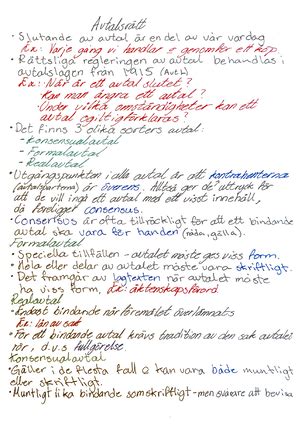 Avtalsrätt
• Slutande av avtal är en del av vår vardag
Ex: Varje gång vi handlar & genomför ett köp
• Rättsliga regleringen av avtal behandlas i
avtalslagen från 1915 (AvtL)
Ex: När är ett avtal slutet?
Kan man ångra ett avtal?
Under vilka omständigheter kan ett
avtal ogiltigförklaras?
• Det finns 3 olika sorters avtal:
- Konsensualavtal
- Formalavtal
- Realavtal
• Utgångspunkten i alla avtal är att kontrahenterna
(avtalsparterna) är överens. Alltså ger de uttryck för
att de vill ingå ett avtal med ett visst innehåll,
då föreligger consensus.
• Consensus är ofta tillräckligt för att ett bindande
avtal ska vara för handen (råda, gälla).
Formalavtal
• Speciella tillfällen - avtalet måste ges viss form.
• Hela eller delar av avtalet måste vara skriftligt.
• Det framgår av lagtexten när avtalet måste
ha viss form, Ex: äktenskapsförord
Realavtal
• Endast bindande när föremålet överlämnats
Ex: lån av sak
• För ett bindande avtal krävs tradition av den sak avtalet
rör, d.v.s fullgörelse.
Konsensualavtal
• Gäller i de flesta fall & kan vara både muntligt
eller skriftligt.
• Muntligt lika bindande som skriftligt - men svårare att bevisa